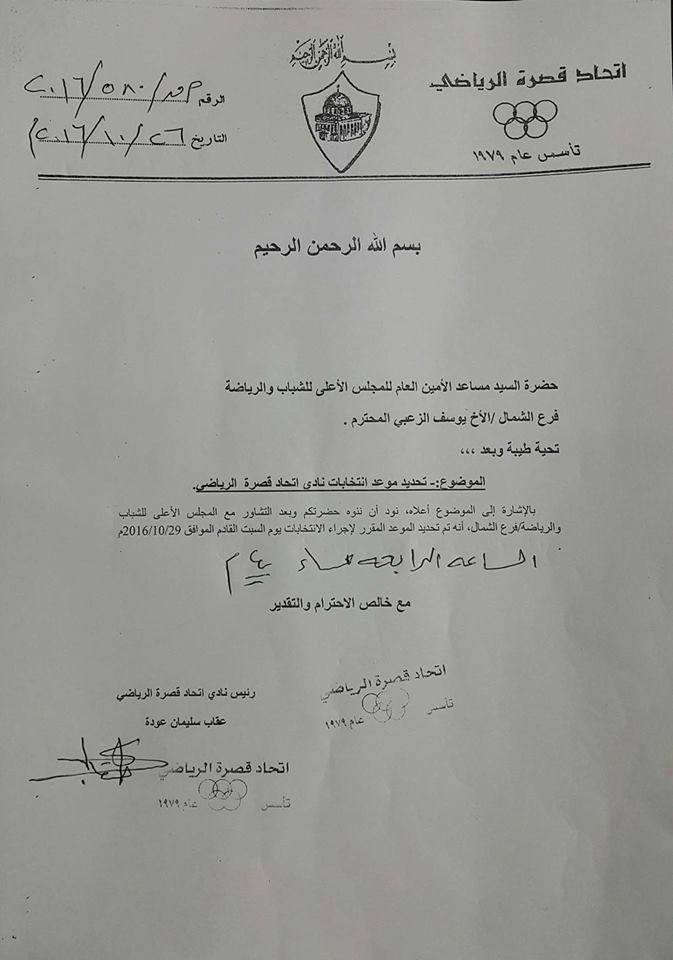 بسم الله الرحمن الرحيم
اتحاد قصرة الرياضي
تأسس عام ١٩٧٩
الرقم ٥٨٠/٢٠١٦
التاريخ ٢٦/١٠/٢٠١٦م
بسم الله الرحمن الرحيم
حضرة السيد مساعد الأمين العام للمجلس الأعلى للشباب والرياضة
فرع الشمال /الأخ يوسف الزعبي المحترم .
تحية طيبة وبعد ،،،
الموضوع:- تحديد موعد انتخابات نادي اتحاد قصرة الرياضي.
بالإشارة إلى الموضوع أعلاه، نود أن ننوه حضرتكم وبعد التشاور مع المجلس الأعلى للشباب
والرياضة/فرع الشمال، أنه تم تحديد الموعد المقرر لإجراء الانتخابات يوم السبت القادم الموافق 2016/10/29م
الساعة الرابعة مساء ٤ م
مع خالص الاحترام والتقدير
رئيس نادي اتحاد قصرة الرياضي
عقاب سليمان عودة
اتحاد قصرة الرياضي
تأسس عام ١٩٧٩
اتحاد قصرة الرياضي
تأسس عام ١٩٧٩